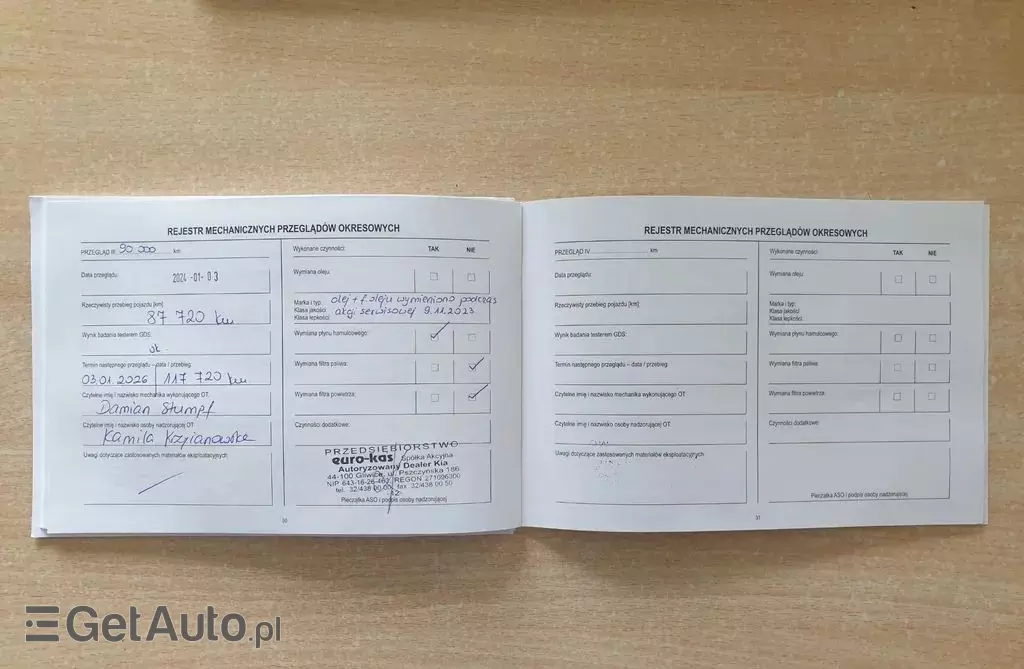 REJESTR MECHANICZNYCH PRZEGLĄDÓW OKRESOWYCH
PRZEGLĄD III 90 000 km
Data przeglądu:
2024 -01- 03
Rzeczywisty przebieg pojazdu [km]:
87 720 km
Wynik badania testerem GDS:
ok
Termin następnego przeglądu – data / przebieg:
03.01.2026 117 720 km
Czytelne imię i nazwisko mechanika wykonującego OT:
Damian Stumpf
Czytelne imię i nazwisko osoby nadzorującej OT
Kamila
Uwagi dotyczące zastosowanych materiałów eksploatacyjnych
Wykonane czynności: TAK NIE
Wymiana oleju:
Marka i typ:
Klasa jakości:
Klasa lepkości:
olej + f. oleju wymieniono podczas
akcji serwisowej 9.11.2023
Wymiana płynu hamulcowego:
Wymiana filtra paliwa:
Wymiana filtra powietrza:
Czynności dodatkowe:
PRZEDSIĘBIORSTWO
euro-kas Spółka Akcyjna
Autoryzowany Dealer Kia
44-100 Gliwice, ul. Pszczyńska 186
NIP 643-16-26-463 REGON 271096300
tel. 32/438 00 00, fax 32/438 00 50
Pieczątka ASO i podpis osoby nadzorującej
30
REJESTR MECHANICZNYCH PRZEGLĄDÓW OKRESOWYCH
PRZEGLĄD IV km
Data przeglądu:
Rzeczywisty przebieg pojazdu [km]:
Wynik badania testerem GDS:
Termin następnego przeglądu – data / przebieg:
Czytelne imię i nazwisko mechanika wykonującego OT:
Czytelne imię i nazwisko osoby nadzorującej OT
Uwagi dotyczące zastosowanych materiałów eksploatacyjnych
Wykonane czynności: TAK NIE
Wymiana oleju:
Marka i typ:
Klasa jakości:
Klasa lepkości:
Wymiana płynu hamulcowego:
Wymiana filtra paliwa:
Wymiana filtra powietrza:
Czynności dodatkowe:
Pieczątka ASO i podpis osoby nadzorującej
31
GetAuto.pl